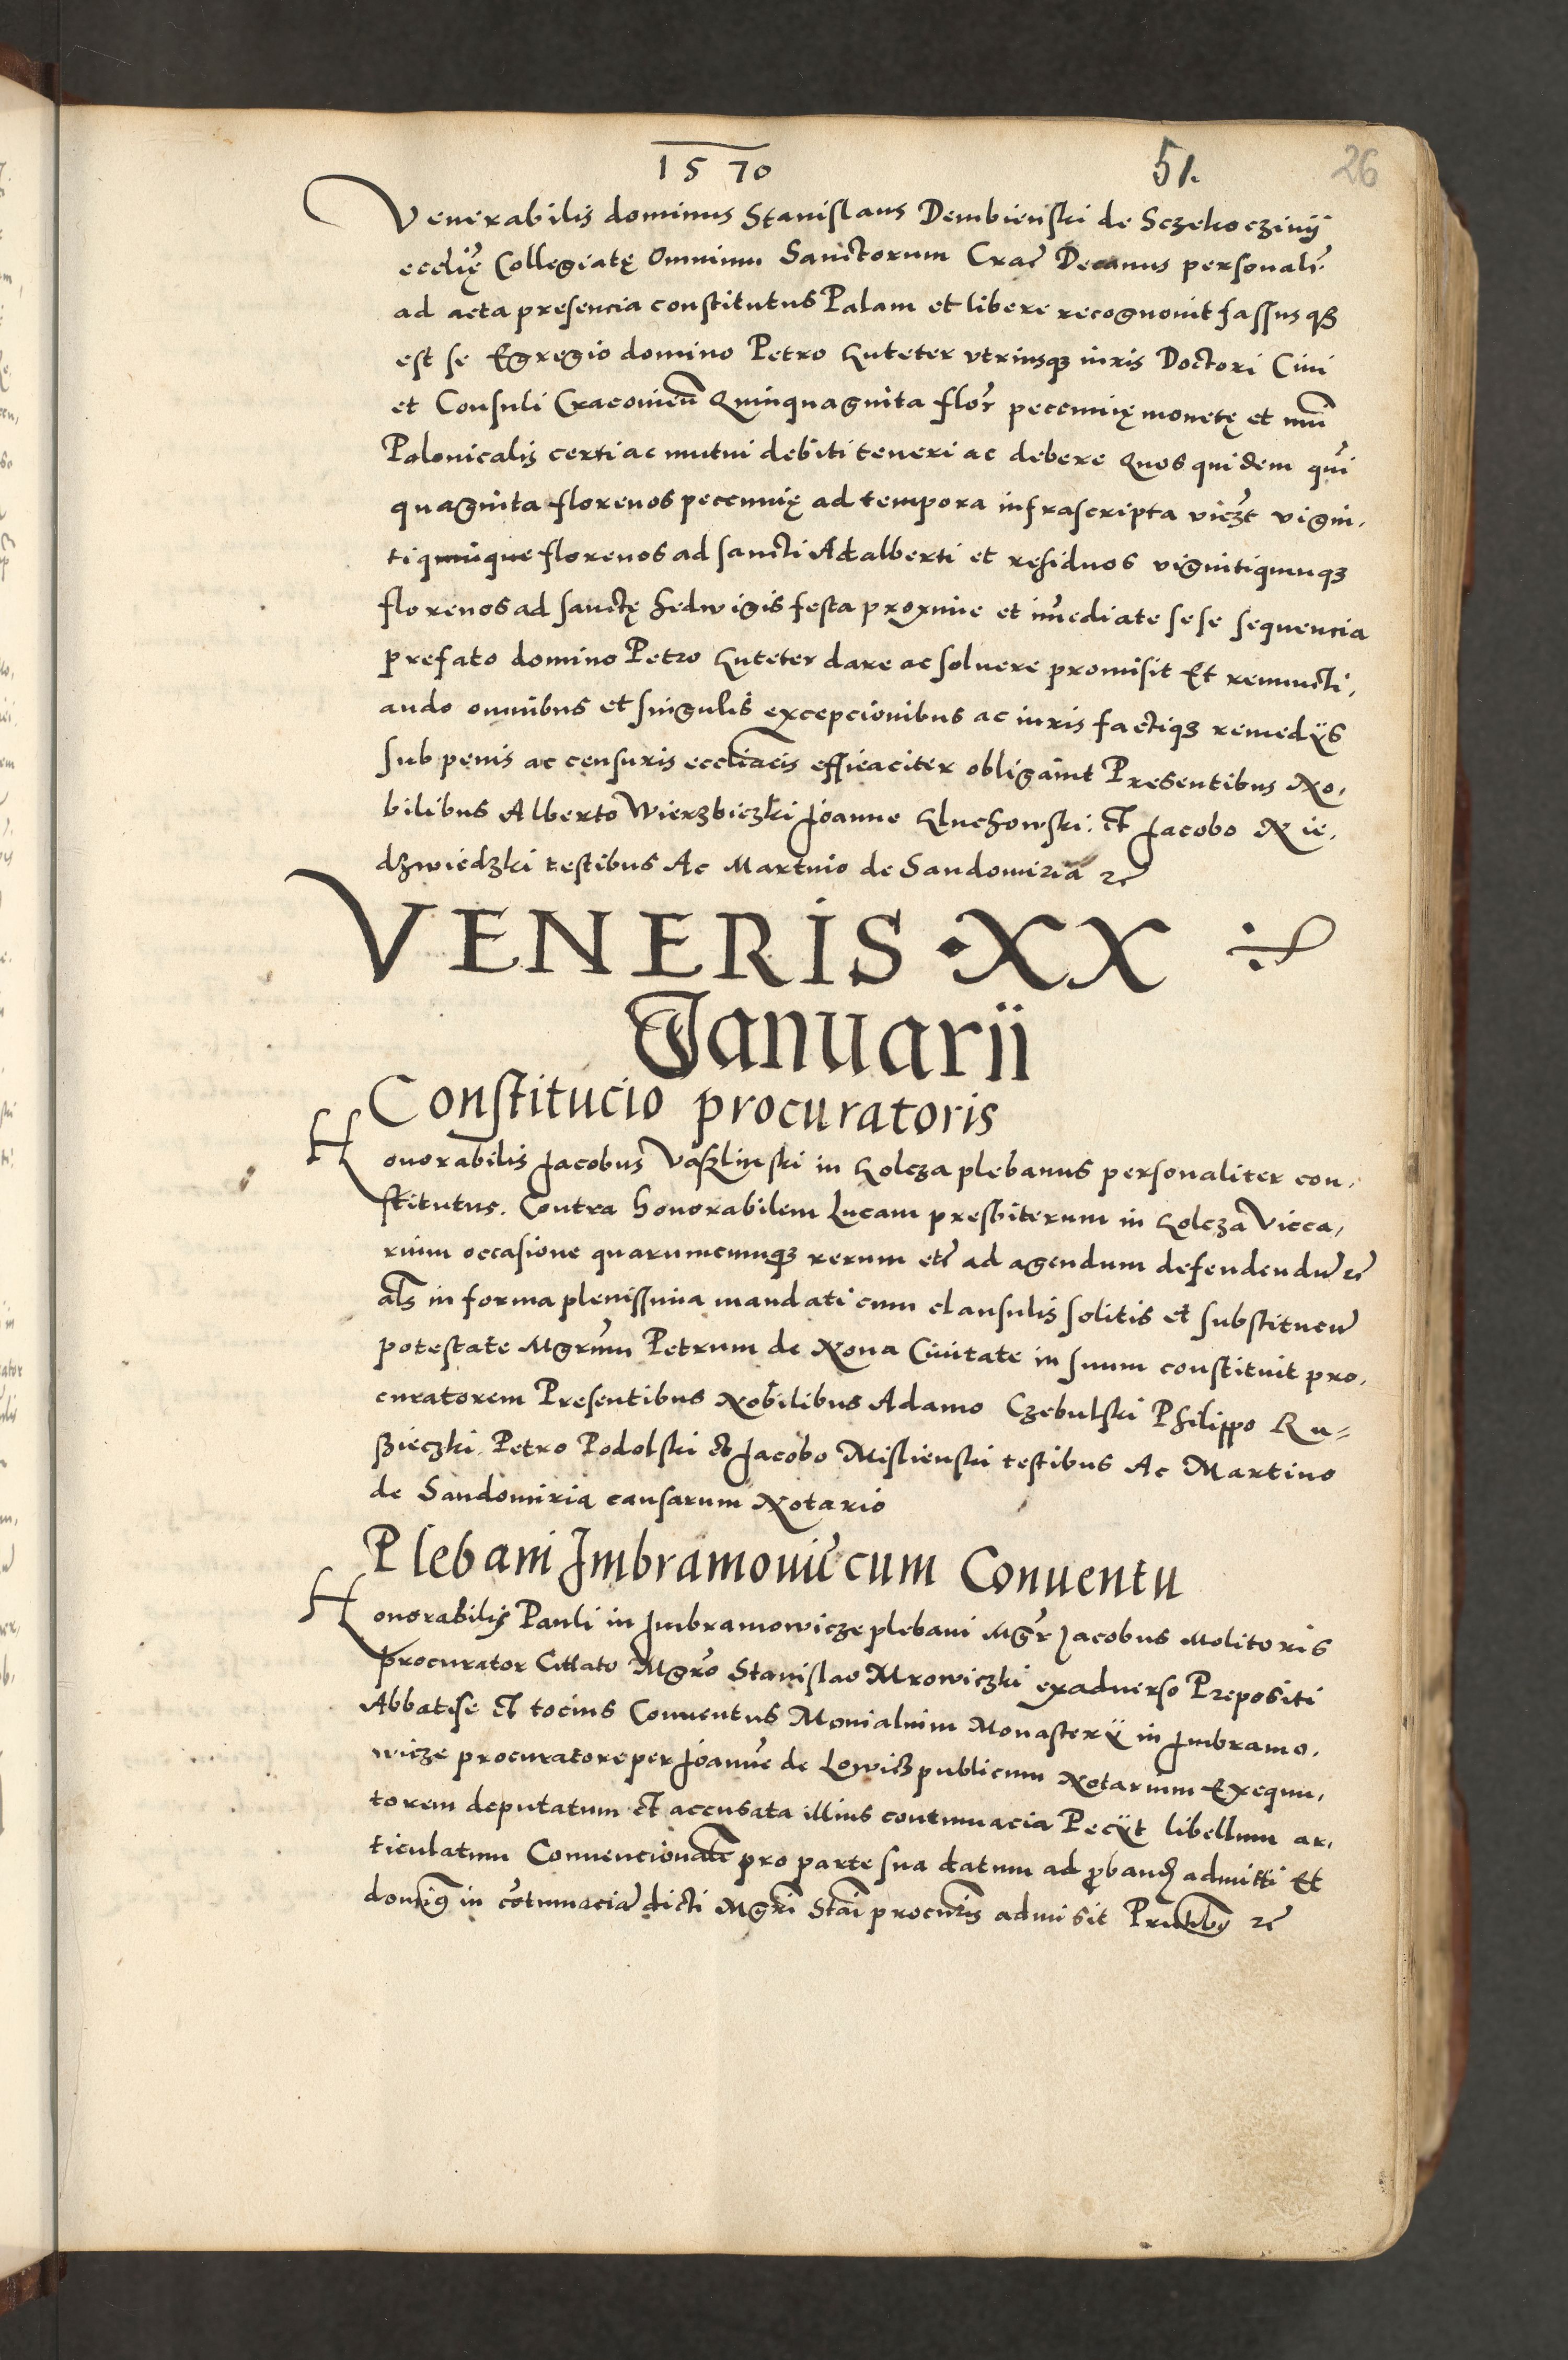 1570 51. 26
Venerabilis dominus Stanislaus Dembienski de Sczekoczinÿ
ecclię Collegiatę Omnium Sanctorum Crac̃ Decanus personalĩ
ad acta presencia constitutus Palam et libere recognouit fassusqȝ
est se Egregio domino Petro Kuteter vtriusqȝ iuris Doctori Ciui
et Consuli Cracouieñ Quinquaginta flor̃ pecunię monetę et nũi
Polonicalis certi ac mutui debiti teneri ac debere Quos quidem quĩ
quaginta florenos pecunię ad tempora infrascripta viczt̃ vigin,
tiquinque florenos ad sancti Adalberti et residuos vigintiquinqȝ
florenos ad sanctę Hedwigis festa proxime et im̃ediate sese sequencia
prefato domino Petro Kuteter dare ac soluere promisit Et renuncti,
ando omnibus et singulis excepcionibus ac iuris factiqȝ remedÿs
sub penis ac censuris eccliacis efficaciter obligauit Presentibus No,
bilibus Alberto Wierzbiczki Joanne Kluchowski: et Jacobo Nie,
dzwiedzki testibus Ac Martino de Sandomiria ꝛc̃
VENERIS • XX
Januarii
Constitucio procuratoris
Honorabilis Jacobus Vaßlinski in Kolcza plebanus personaliter con,
stitutus. Contra honorabilem Lucam presbiterum in Kolcza Vicca,
rium occasione quarumcumqȝ rerum etc̃ ad agendum defendendũ ꝛc̃
als̃ in forma plenissima mandati cum clausulis solitis et substituen̄
potestate Mgrũm Petrum de Noua Ciuitate in suum constituit pro,
curatorem Presentibus Nobilibus Adamo Czebulski Philippo Ru=
ßieczki. Petro Podolski et Jacobo Mislienski testibus Ac Martino
de Sandomiria causarum Notario
Plebani Imbramouic̃ cum Conuentu
Honorabilis Pauli in Imbramowicze plebani Mgr̃ Jacobus Molitoris
procurator Citato Mgrõ Stanislao Mrowiczki exaduerso Prepositi
Abbatise et tocius Conuentus Monialium Monasterÿ in Imbramo,
wicze procuratore per Joannẽ de Lowicz publicum Notarium Exequu,
torem deputatum et accusata illius contumacia Pecÿt libellum ar,
ticulatum Conuencionalẽ pro parte sua datum ad ꝓband̃ admitti Et
domin9 in cõtumaciã dicti Mgrĩ Stañi procuris admisit Pn̄tibus ꝛc̃